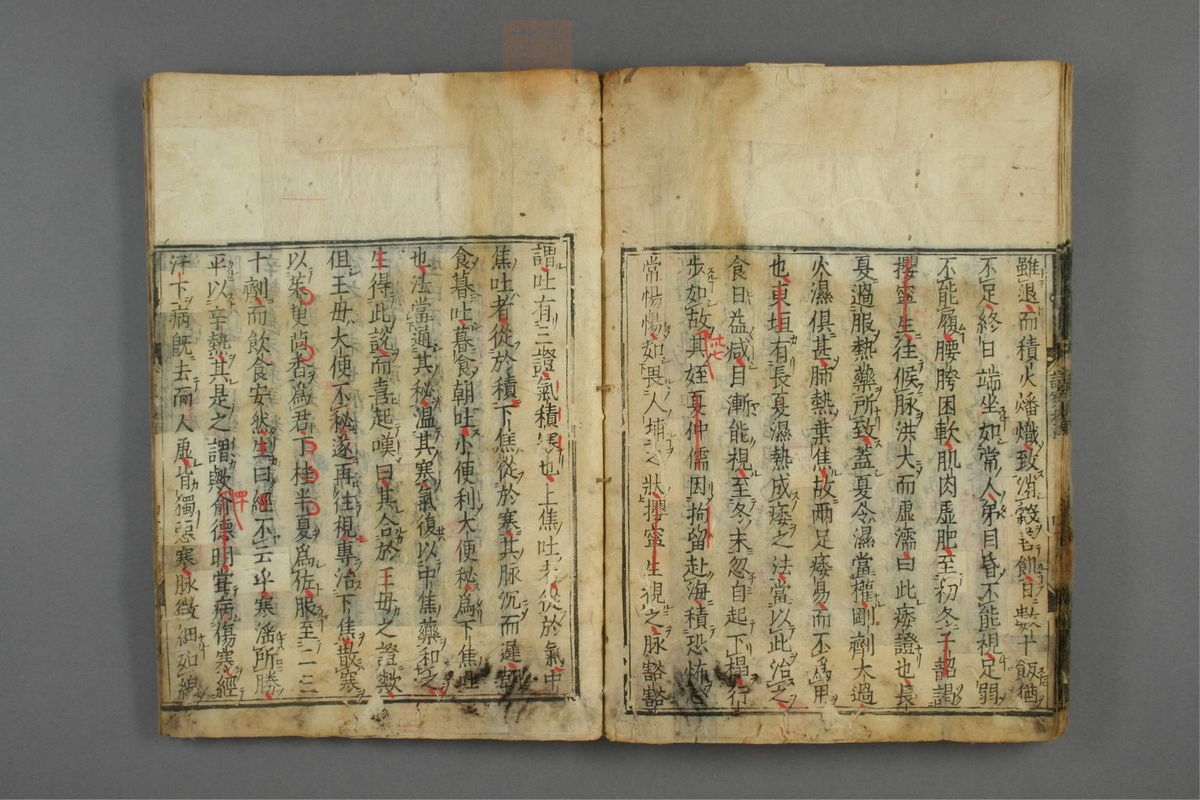 雖退而積火燔熾致消穀善飢日數十飯猶
不足終日端坐如常人第目昏不能視足弱
不能履腰胯困軟肌肉虛肥至初冬子韶謁
攖寧生往候脉洪大而虛濡曰此痿證也長
夏過服熱藥所致蓋夏令濕當權剛劑太過
火濕俱甚肺熱葉焦故兩足痿易而不爲用
也東垣有長夏濕熱成痿之法當以此治之
食日益減目漸能視至冬末忽自起下榻行
步如故其姪夏仲儒因拘留赴海積恐怖
當惕惕如畏人捕之狀攖寧生視之脉豁豁
謂吐有三證氣積寒也上焦吐者從於氣中
焦吐者從於積下焦從於寒其脉沉而遲朝
食暮吐暮食朝吐小便利大便秘爲下焦吐
也法當通其秘溫其寒氣復以中焦藥和之
生得此說而喜起嘆曰其合於王毋之證歟
但王毋大便不秘遂再往視專治下焦散寒
以茱萸茴香爲君下桂半夏爲佐服至二三
十劑而飲食安然生曰經不云乎寒滛所勝
平以辛熱其是之謂歟俞德明宰病傷寒經
汗下病旣去而人虛背獨惡寒脉微細如線